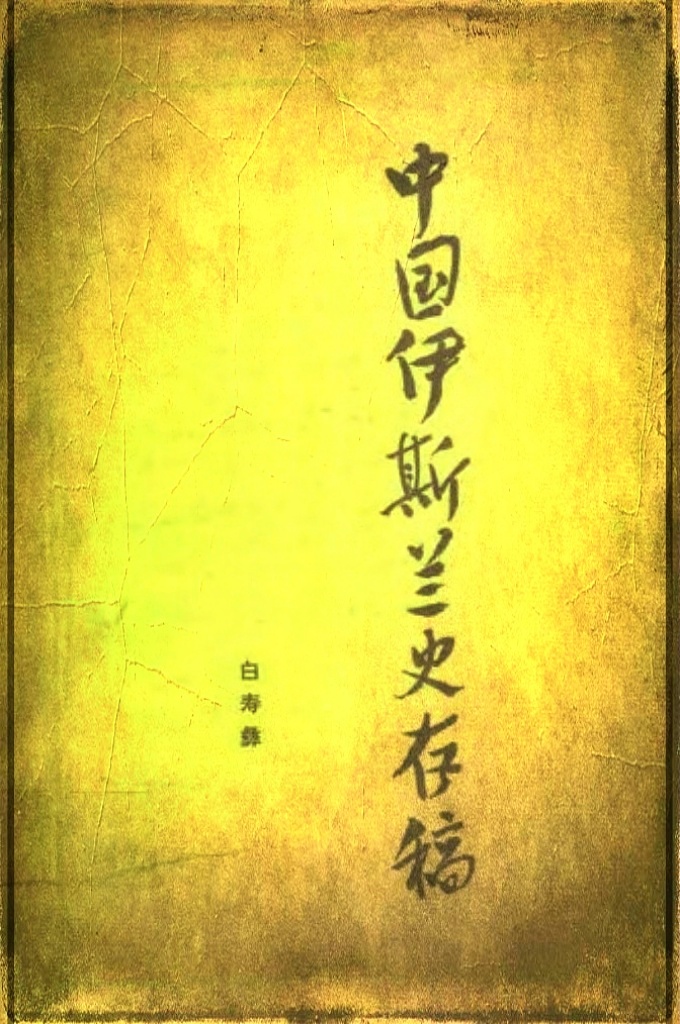 中国伊斯兰史存稿
白寿彝